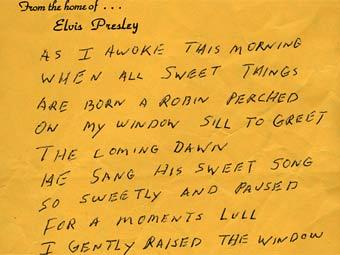 From the home of . . .
Elvis Presley
AS I AWOKE THIS MORNING
WHEN ALL SWEET THINGS
ARE BORN A ROBIN PERCHED
ON MY WINDOW SILL TO GREET
THE COMING DAWN
HE SANG HIS SWEET SONG
SO SWEETLY AND PAUSED
FOR A MOMENTS LULL
I GENTLY RAISED THE WINDOW